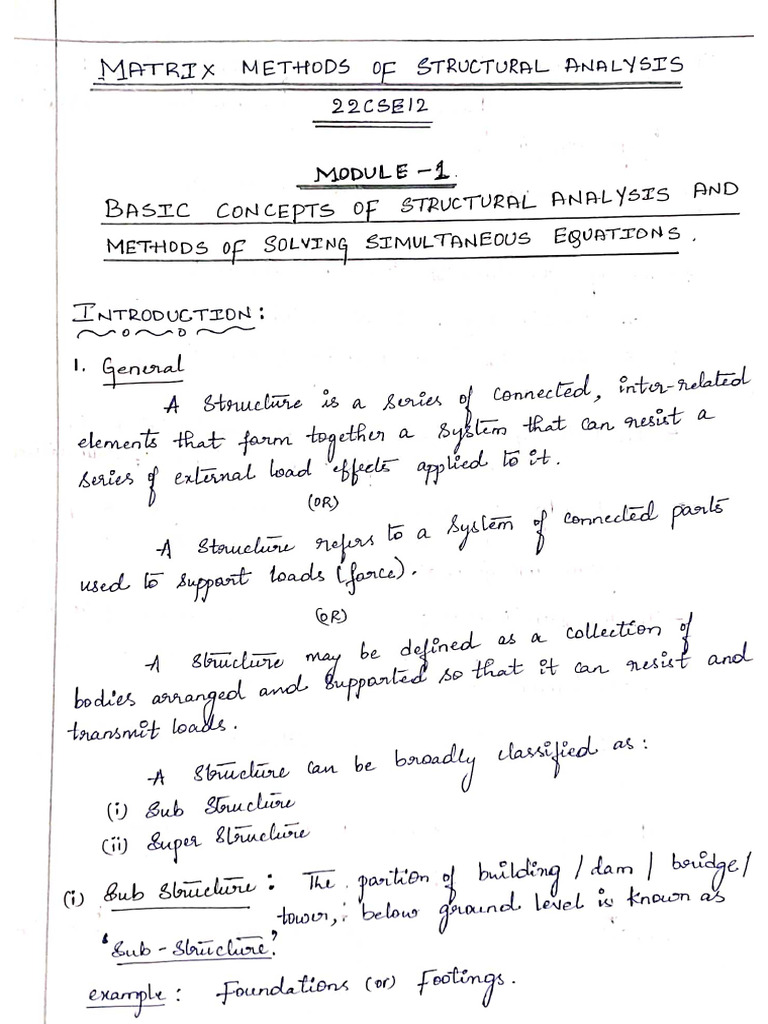 MATRIX METHODS OF STRUCTURAL ANALYSIS
22CSE12
MODULE -1.
BASIC CONCEPTS OF STRUCTURAL ANALYSIS AND
METHODS OF SOLVING SIMULTANEOUS EQUATIONS.
INTRODUCTION:
1. General
A structure is a series of connected, inter-related
elements that form together a system that can resist a
series of external load effects applied to it.
(OR)
A structure refers to a system of connected parts
used to support loads (force).
(OR)
A structure may be defined as a collection of
bodies arranged and supported so that it can resist and
transmit loads.
A structure can be broadly classified as:
(i) Sub structure
(ii) Super structure
(i) Sub structure: The partion of building / dam / bridge/
tower, below ground level is known as
'Sub-structure'.
example: Foundations (or) Footings.